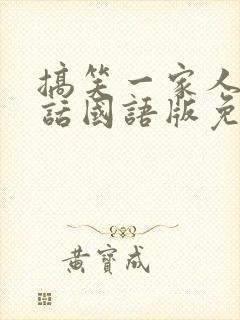 搞笑一家人
話國語版免
黃寶成